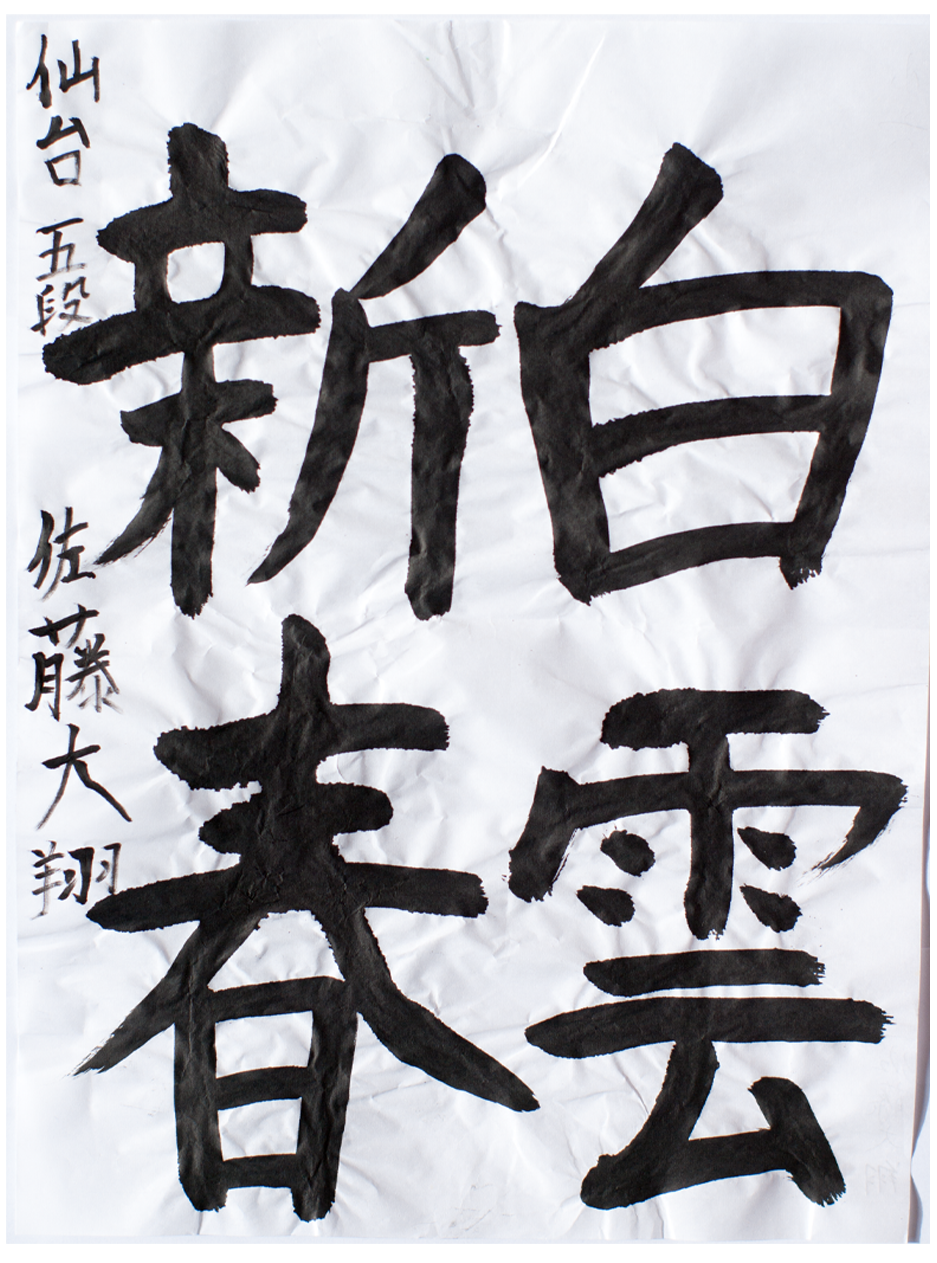 白雲
新春
仙台 五段 佐藤大翔